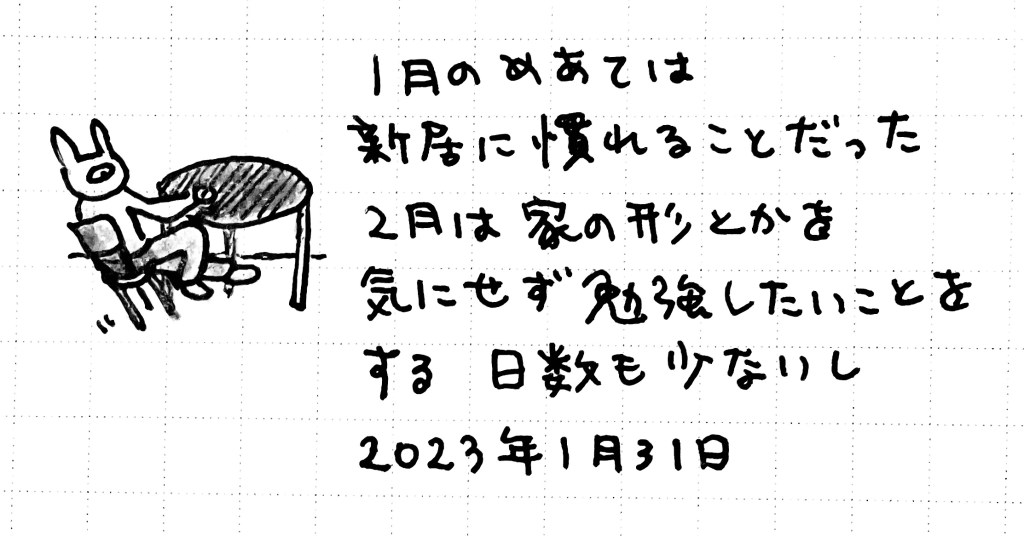 1月のめあては
新居に慣れることだった
2月は家の形とかを
気にせず勉強したいことを
する 日数も少ないし
2023年1月31日